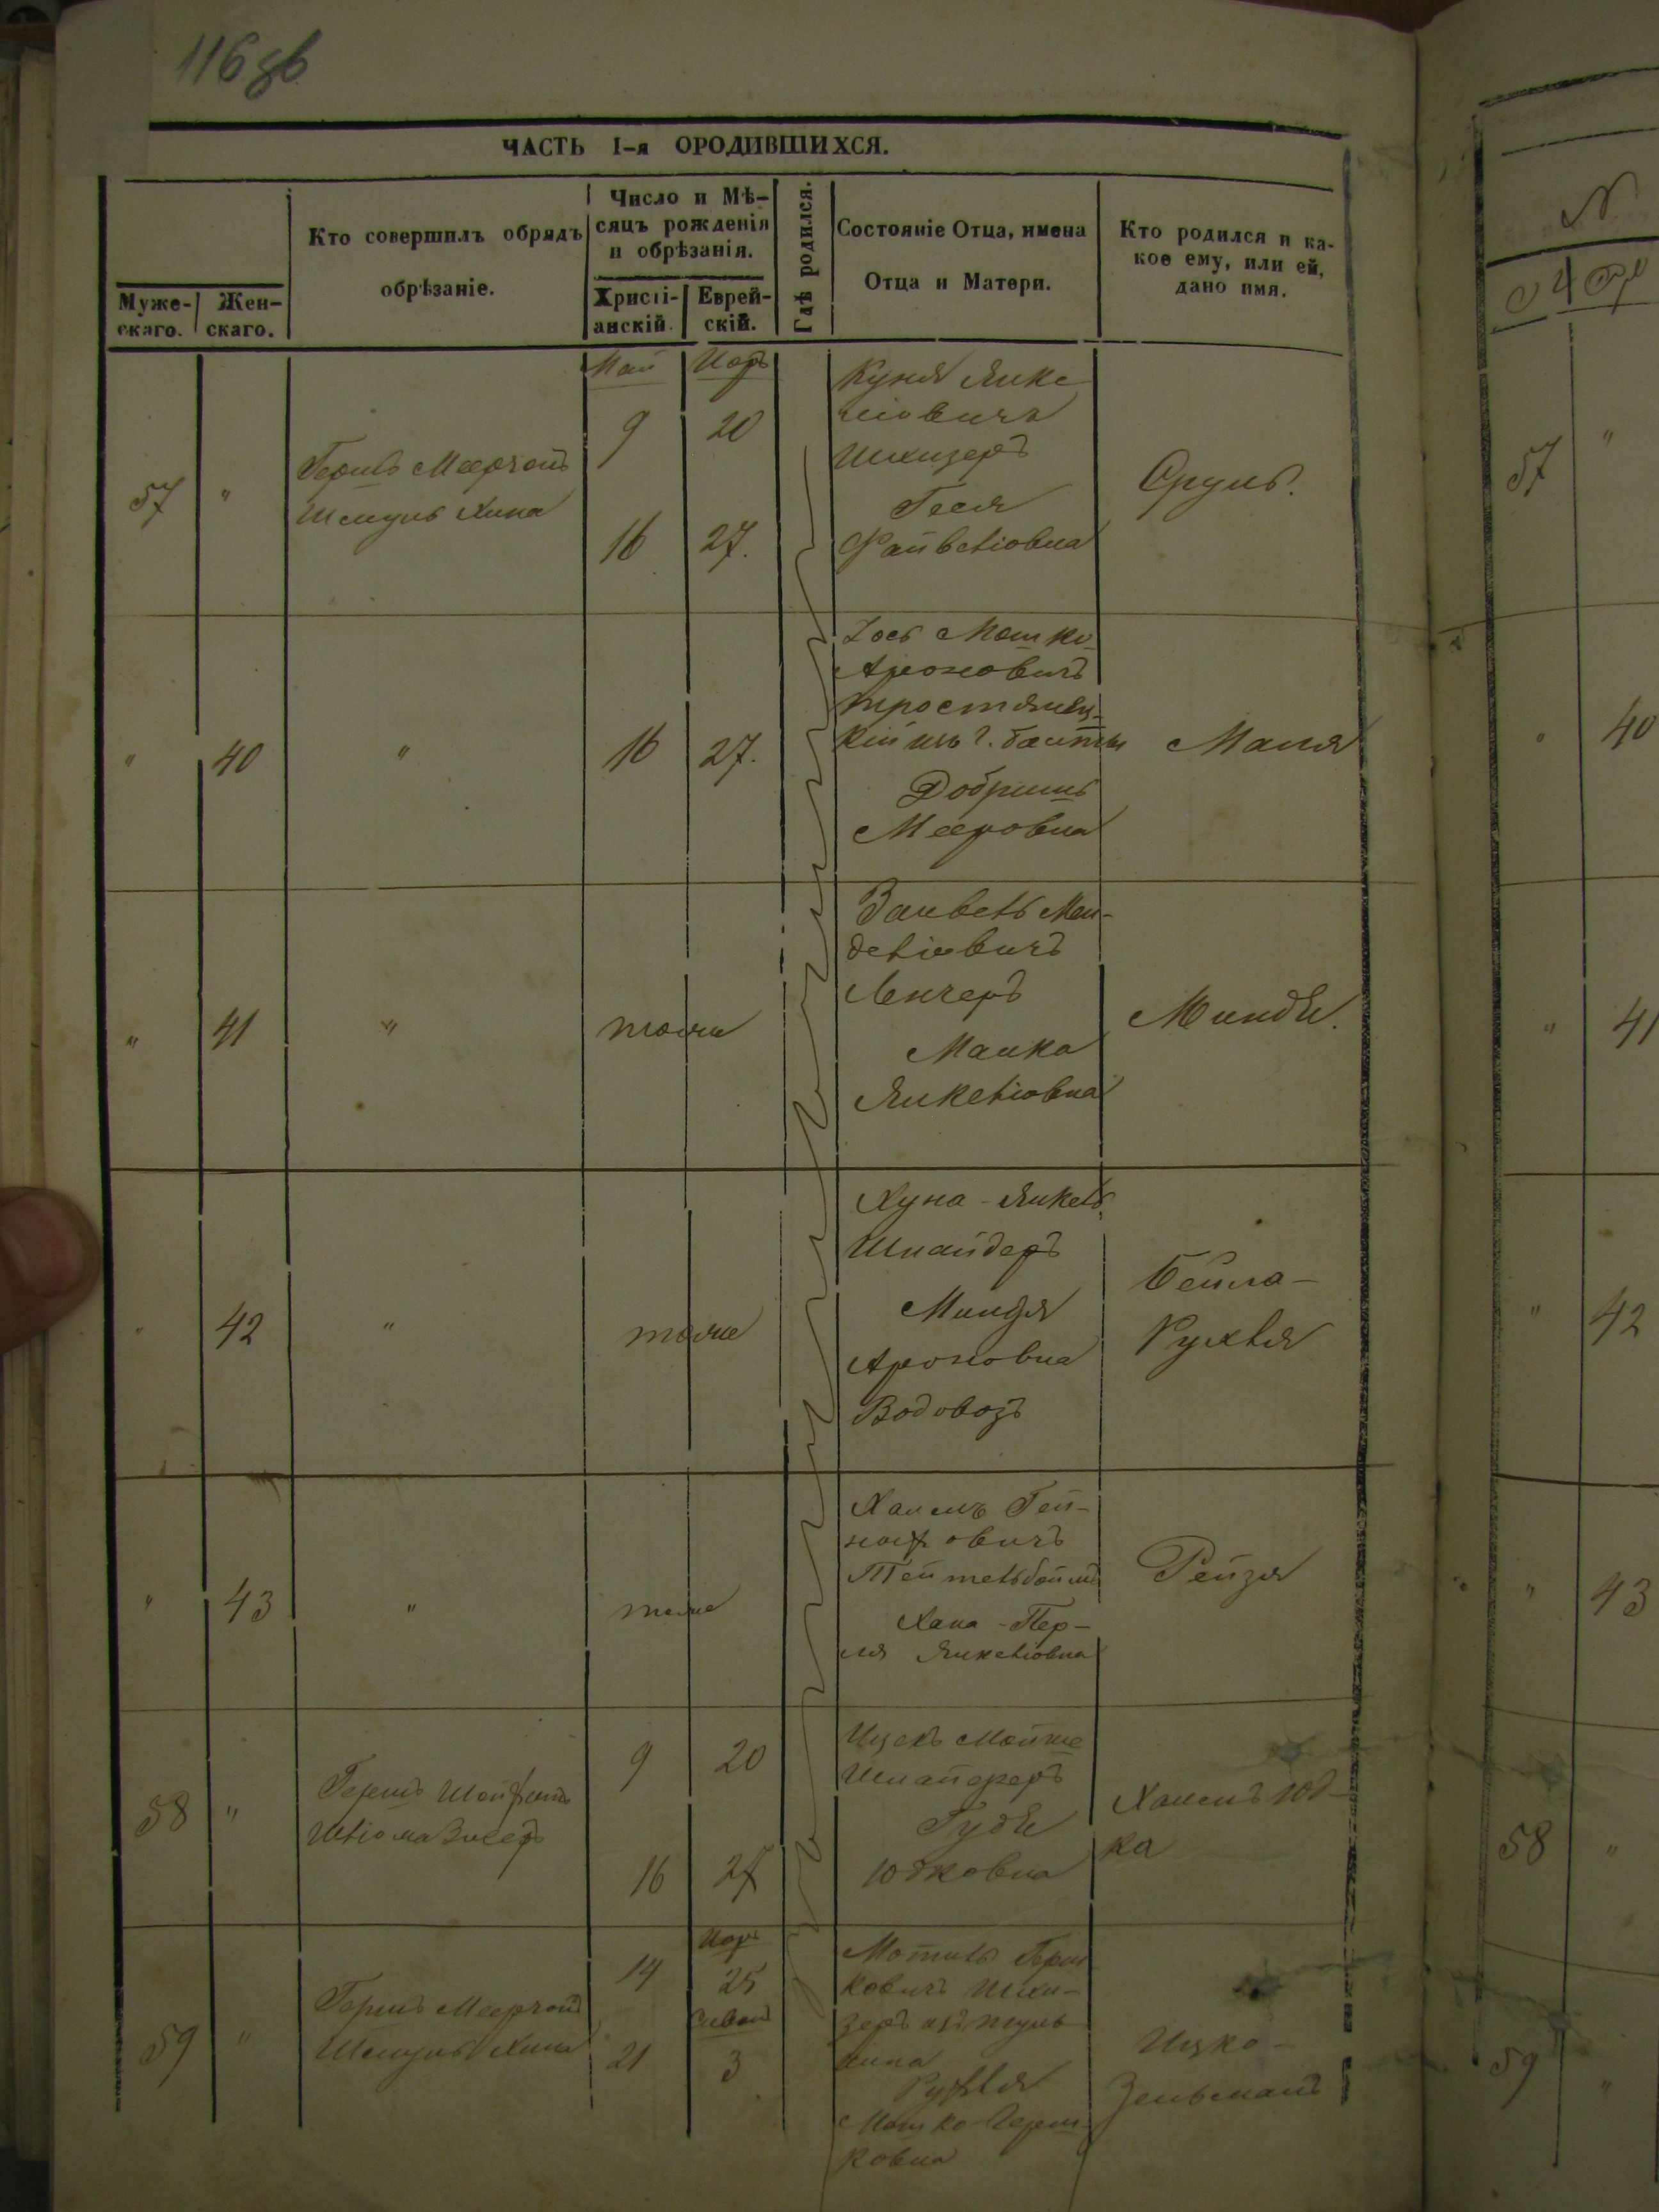 116 зв
ЧАСТЬ I-я О РОДИВШИХСЯ.
Муже-
скаго.
Жен-
скаго.
Кто совершилъ обрядъ
обрѣзаніе.
Число и Мѣ-
сяцъ рожденія
и обрѣзанія.
Христі-
анскій.
Еврей-
скій.
Гдѣ родился.
Состояніе Отца, имена
Отца и Матери.
Кто родился и ка-
кое ему, или ей,
дано имя.
Май Іоръ
57 "
Гершъ Меерзонъ
Шмуль Хина
9 20
16 27.
Куня Янке
лiовичъ
Шихзеръ
Геся
Файвелiовна
Сруль.
" 40 " 16 27.
Іось Мошко
Ароновичъ
Тростянец-
кій изъ г. Балты
Добришъ
Мееровна
Маля
" 41 " тоже
Занвель Мен-
делiовичъ
Ленчеръ
Малка
Янкелiовна
Миндѣ.
" 42 " тоже
Хуна-Янкель
Шнайдеръ
Миндя
Ароновна
Водовозъ
Бейла-
Рухля
" 43 " тоже
Хаимъ Гей-
ноховичъ
Тейтельбоймъ
Хана-Пер-
ля Янкелiовна
Рейзя
58 "
Гершъ
Шліома
9 20
16 27
Ицекъ Мойше
Шнайдеръ
Гудѣ
Юдковна
Хаимъ Юд-
ка
59 "
Гершъ Меерзонъ
Шмуль Хина
14
Іоръ
25
Сиванъ
21 3
Мотель Герш
ковичъ Шхи-
зеръ изъ Туль
чина
Рухля
Мошко-Герш-
ковна
Ицко-
Зельманъ
N
57 "
" 40
" 41
" 42
" 43
58 "
59 "